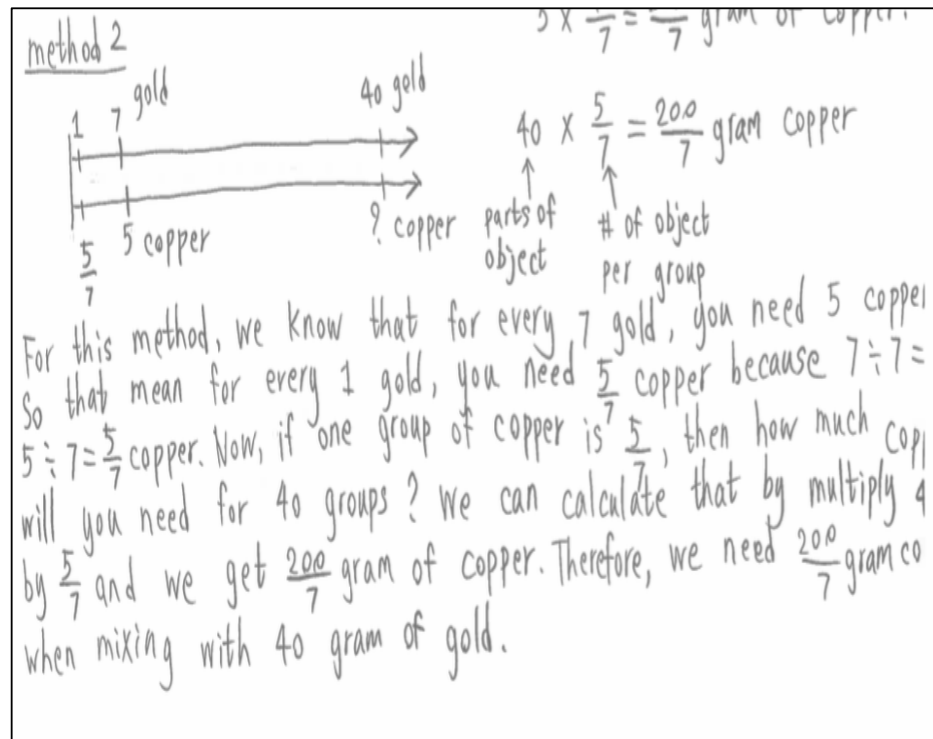 5 × /7 = /7 gram of copper.
method 2
1 7 gold 40 gold
40 × 5/7 = 200/7 gram copper
5/7 5 copper ? copper
parts of object
# of object per group
For this method, we know that for every 7 gold, you need 5 copper
So that mean for every 1 gold, you need 5/7 copper because 7÷7=
5÷7=5/7 copper. Now, if one group of copper is 5/7, then how much
will you need for 40 groups? We can calculate that by multiply 4
by 5/7 and we get 200/7 gram of copper. Therefore, we need 200/7 gram co
when mixing with 40 gram of gold.